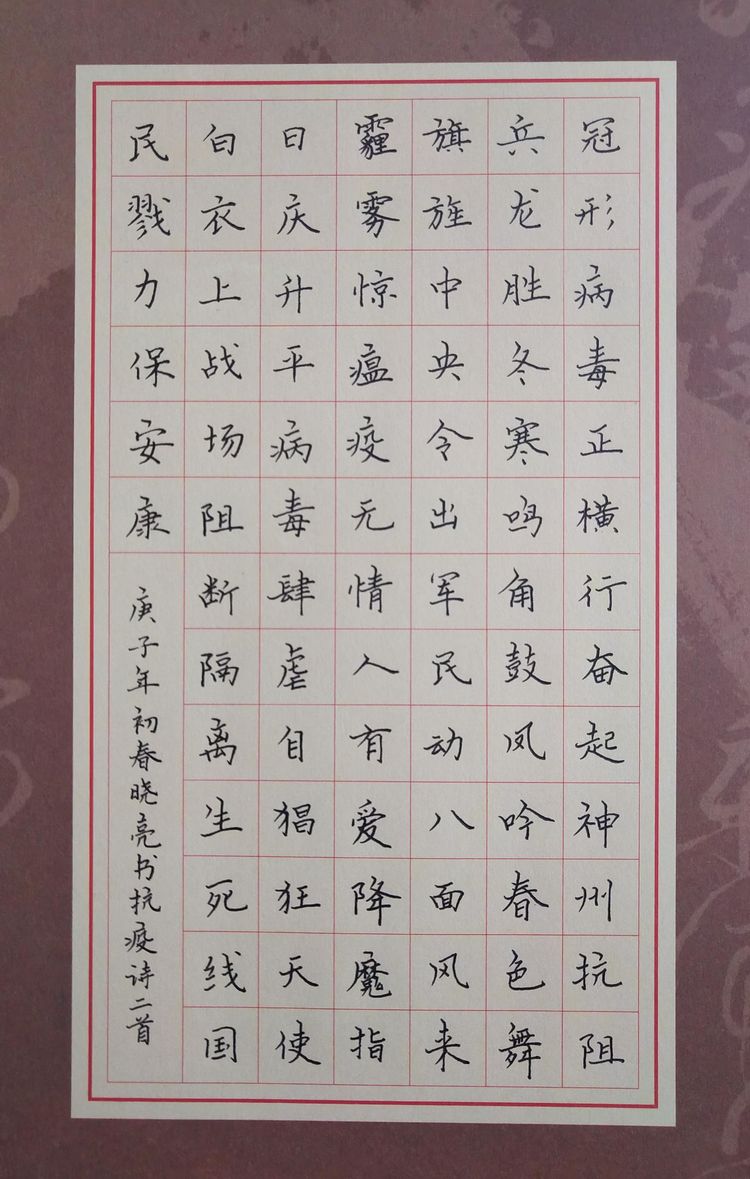 冠形病毒正横行奋起神州抗阻
兵龙胜冬寒鸣角鼓凤吟春色舞
旗旌中央令出军民动八面风来
霾雾惊瘟疫无情人有爱降魔指
日庆升平病毒肆虐自猖狂天使
白衣上战场阻断隔离生死线国
民戮力保安康
庚子年初春晓亮书抗疫诗二首